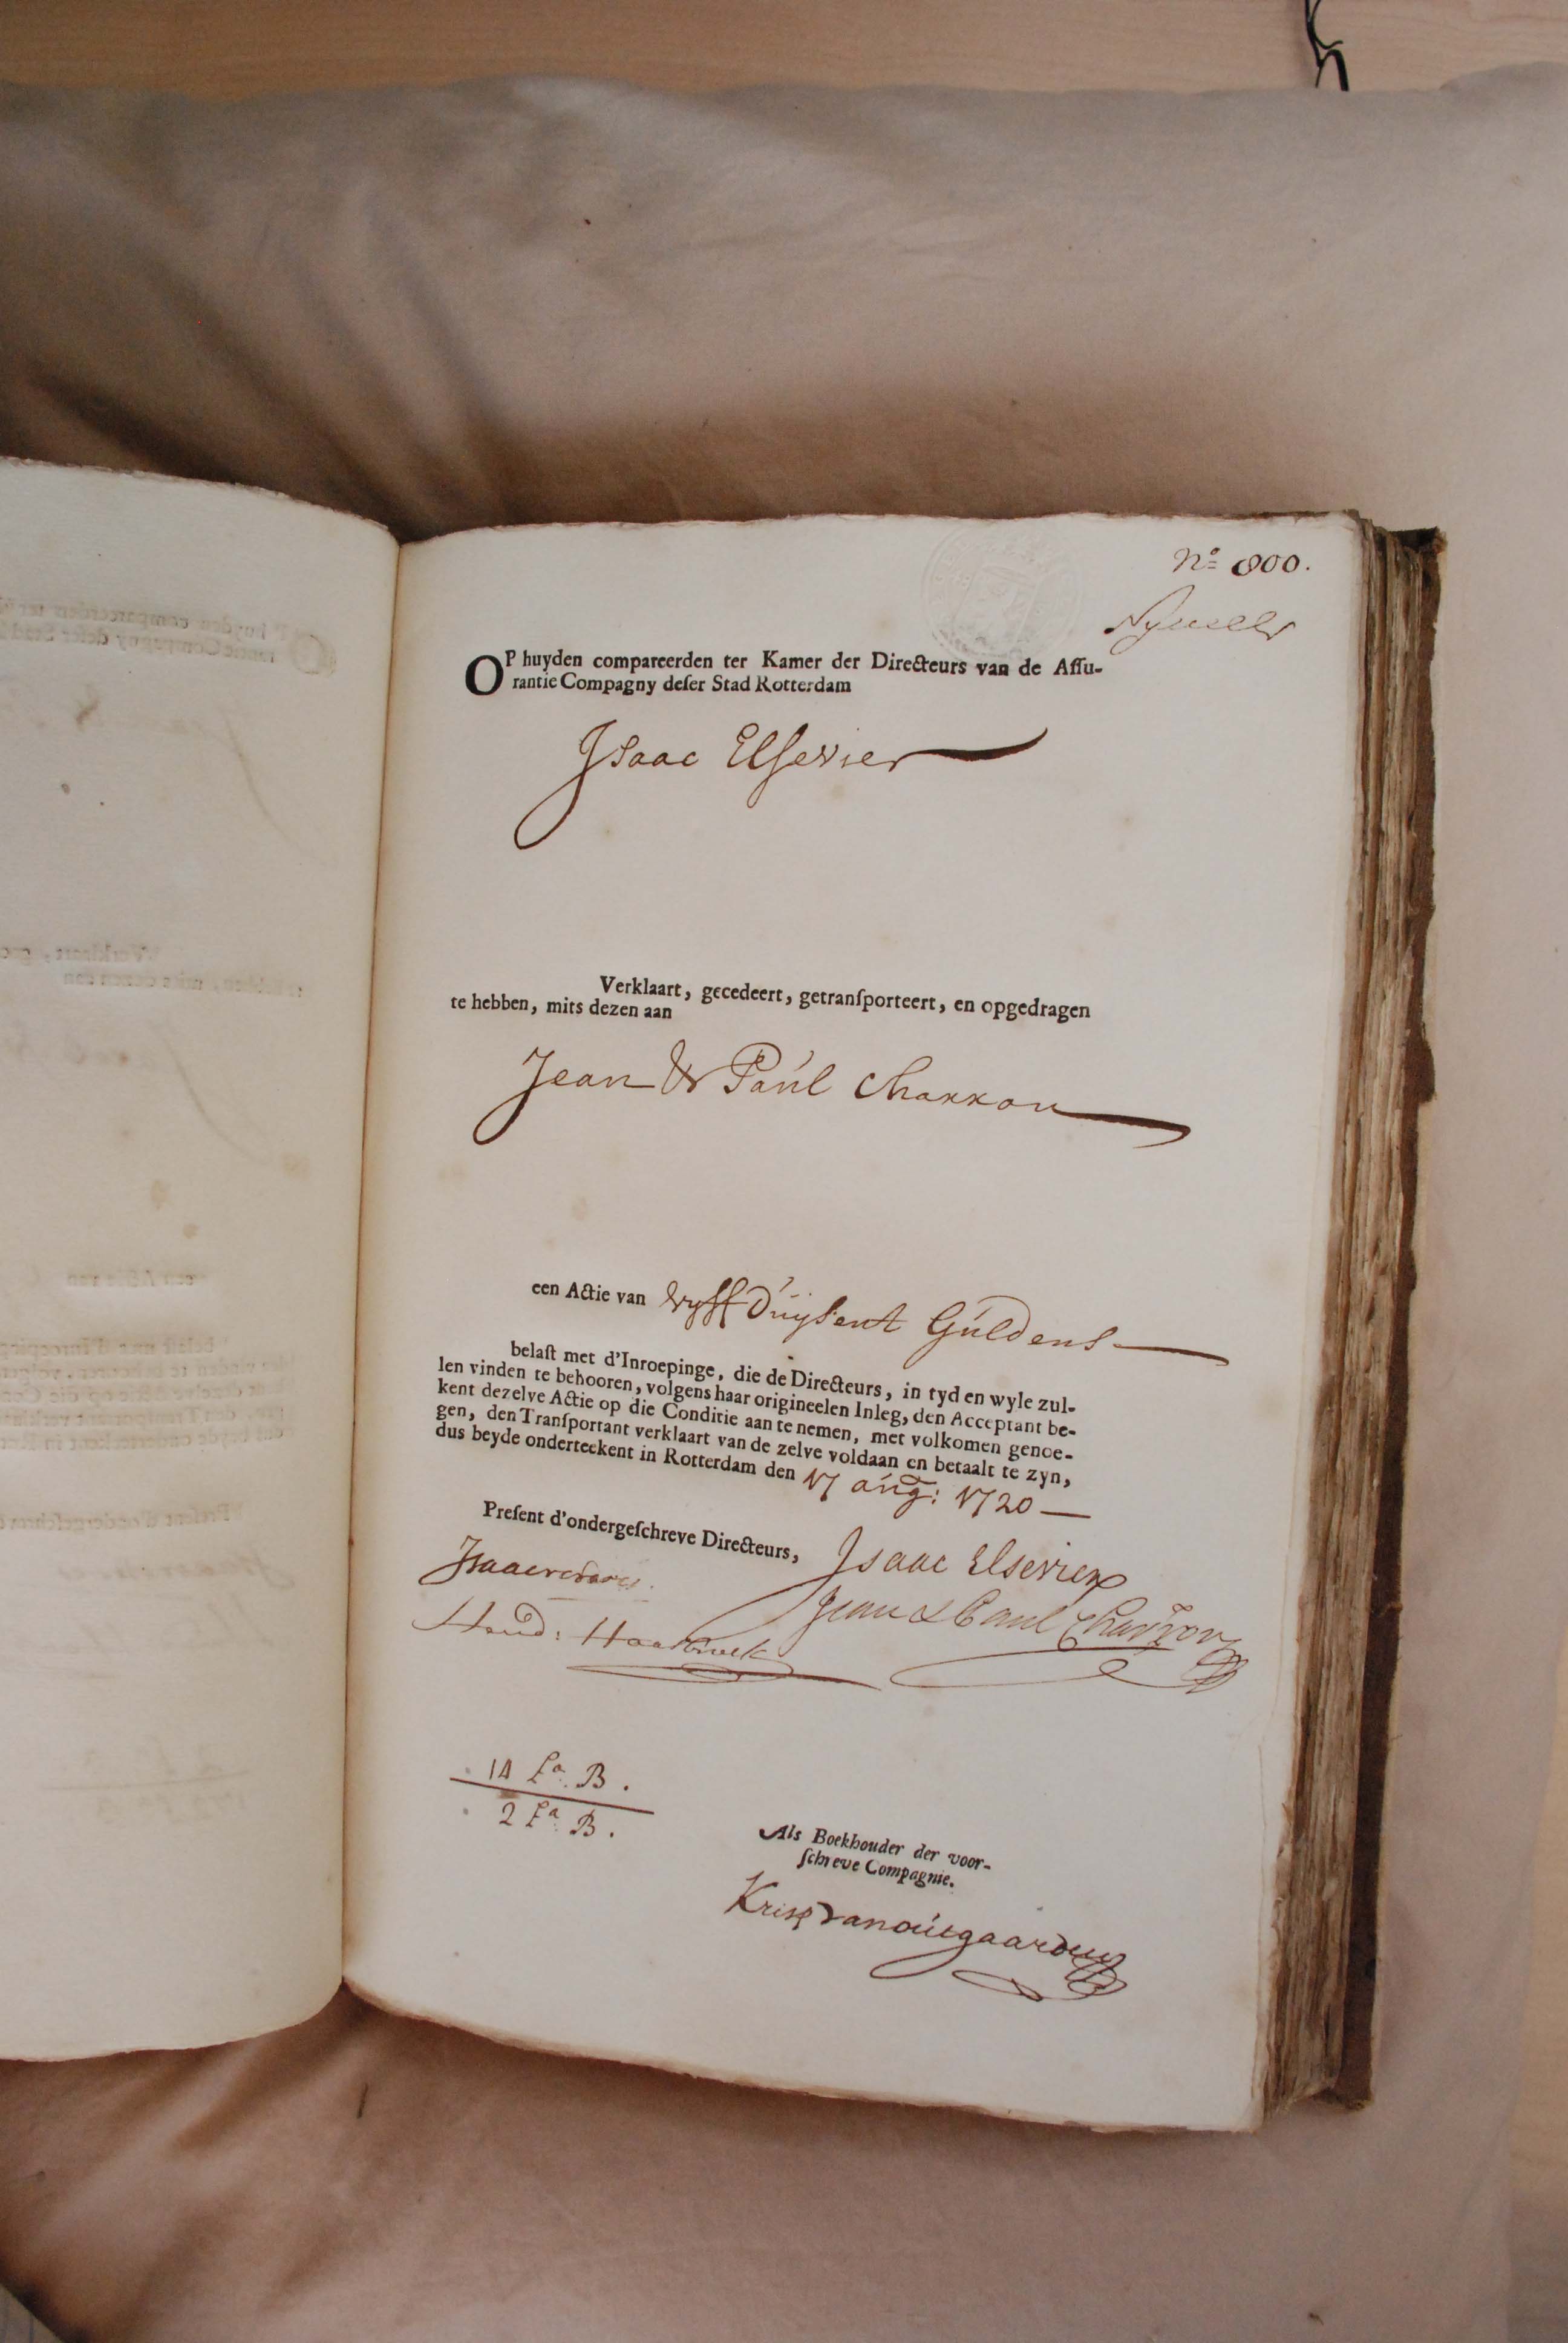 No 800.
OP huyden compareerden ter Kamer der Directeurs van de Assu-
rantie Compagny deser Stad Rotterdam
Isaac Elsevier
Verklaart, gecedeert, getransporteert, en opgedragen
te hebben, mits dezen aan
Jean & Paul Charron
een Actie van vyff duysent Guldens
belast met d'Inroepinge, die de Directeurs, in tyd en wyle zul-
len vinden te behooren, volgens haar origineelen Inleg, den Acceptant be-
kent dezelve Actie op die Conditie aan te nemen, met volkomen genoe-
gen, den Transportant verklaart van de zelve voldaan en betaalt te zyn,
dus beyde onderteekent in Rotterdam den 17 aug: 1720
Present d'ondergeschreve Directeurs,
Isaac Elsevier
Jean & Paul Charron
14 La. B.
2 La. B.
Als Boekhouder der voor-
schreve Compagnie.